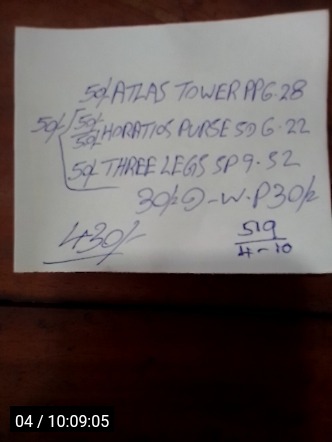 50/- ATLAS TOWER PP 6.28
50/- 50/- HORATIOS PURSE SD 6.22
50/-
50/- THREE LEGS SP 9.52
30/- D-W.P 30/-
430/-
519
4-10
04 / 10:09:05